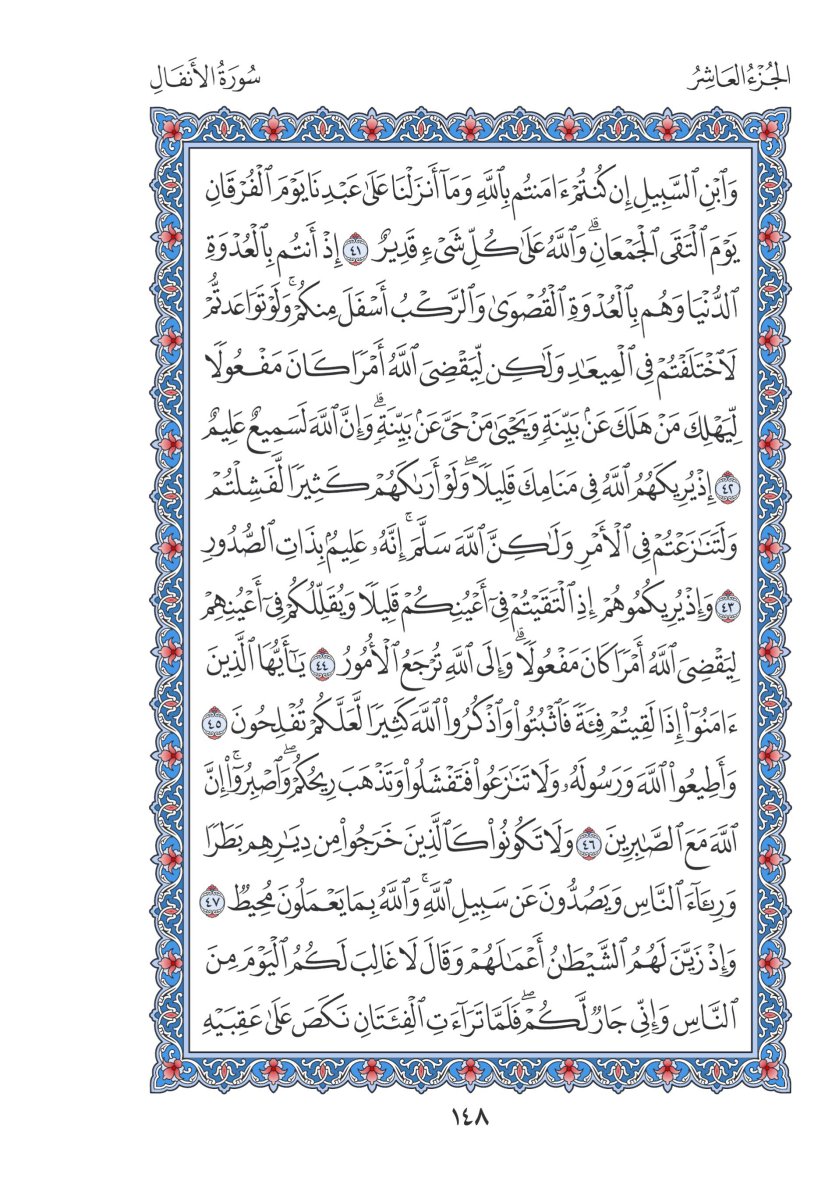 الجُزْءُ العَاشِرُ
سُورَةُ الأَنفَالِ
وَٱبْنِ ٱلسَّبِيلِ إِن كُنتُمْ ءَامَنتُم بِٱللَّهِ وَمَآ أَنزَلْنَا عَلَىٰ عَبْدِنَا يَوْمَ ٱلْفُرْقَانِ
يَوْمَ ٱلْتَقَى ٱلْجَمْعَانِۗ وَٱللَّهُ عَلَىٰ كُلِّ شَىْءٍ قَدِيرٌ ٤١ إِذْ أَنتُم بِٱلْعُدْوَةِ
ٱلدُّنْيَا وَهُم بِٱلْعُدْوَةِ ٱلْقُصْوَىٰ وَٱلرَّكْبُ أَسْفَلَ مِنكُمْۚ وَلَوْ تَوَاعَدتُّمْ
لَٱخْتَلَفْتُمْ فِى ٱلْمِيعَـٰدِ وَلَـٰكِن لِّيَقْضِىَ ٱللَّهُ أَمْرًا كَانَ مَفْعُولًا
لِّيَهْلِكَ مَنْ هَلَكَ عَنۢ بَيِّنَةٍ وَيَحْيَىٰ مَنْ حَىَّ عَنۢ بَيِّنَةٍۗ وَإِنَّ ٱللَّهَ لَسَمِيعٌ عَلِيمٌ
٤٢ إِذْ يُرِيكَهُمُ ٱللَّهُ فِى مَنَامِكَ قَلِيلًاۖ وَلَوْ أَرَىٰكَهُمْ كَثِيرًا لَّفَشِلْتُمْ
وَلَتَنَـٰزَعْتُمْ فِى ٱلْأَمْرِ وَلَـٰكِنَّ ٱللَّهَ سَلَّمَۚ إِنَّهُۥ عَلِيمٌۢ بِذَاتِ ٱلصُّدُورِ
٤٣ وَإِذْ يُرِيكُمُوهُمْ إِذِ ٱلْتَقَيْتُمْ فِىٓ أَعْيُنِكُمْ قَلِيلًا وَيُقَلِّلُكُمْ فِىٓ أَعْيُنِهِمْ
لِيَقْضِىَ ٱللَّهُ أَمْرًا كَانَ مَفْعُولًاۗ وَإِلَى ٱللَّهِ تُرْجَعُ ٱلْأُمُورُ ٤٤ يَـٰٓأَيُّهَا ٱلَّذِينَ
ءَامَنُوٓا۟ إِذَا لَقِيتُمْ فِئَةً فَٱثْبُتُوا۟ وَٱذْكُرُوا۟ ٱللَّهَ كَثِيرًا لَّعَلَّكُمْ تُفْلِحُونَ ٤٥
وَأَطِيعُوا۟ ٱللَّهَ وَرَسُولَهُۥ وَلَا تَنَـٰزَعُوا۟ فَتَفْشَلُوا۟ وَتَذْهَبَ رِيحُكُمْۖ وَٱصْبِرُوٓا۟ۚ إِنَّ
ٱللَّهَ مَعَ ٱلصَّـٰبِرِينَ ٤٦ وَلَا تَكُونُوا۟ كَٱلَّذِينَ خَرَجُوا۟ مِن دِيَـٰرِهِم بَطَرًا
وَرِئَآءَ ٱلنَّاسِ وَيَصُدُّونَ عَن سَبِيلِ ٱللَّهِۚ وَٱللَّهُ بِمَا يَعْمَلُونَ مُحِيطٌ ٤٧
وَإِذْ زَيَّنَ لَهُمُ ٱلشَّيْطَـٰنُ أَعْمَـٰلَهُمْ وَقَالَ لَا غَالِبَ لَكُمُ ٱلْيَوْمَ مِنَ
ٱلنَّاسِ وَإِنِّى جَارٌ لَّكُمْۖ فَلَمَّا تَرَآءَتِ ٱلْفِئَتَانِ نَكَصَ عَلَىٰ عَقِبَيْهِ
١٤٨